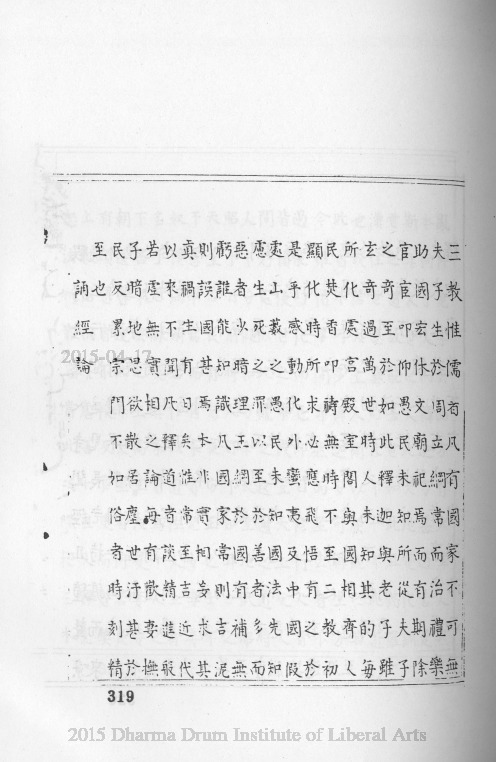 三教惟儒有凡有國家不可無
夫子生於周立綱常而治禮樂
助國宏休文廟祀焉而有期除
官宦叩仰愚民未知所從夫子
之奇至於如此釋迦與老子雖
玄奇過萬世時人未知其的每
所化處宮殿室閻與國相齊人
民焚香叩禱無時不至二教初
顯化時所求必應飛悟有之於
是乎感動化外蠻夷及中國假
處山藪之愚民未知國法先知
慮生死之罪以至於善者多而
惡者少暗理王綱於國有補無
虧誰能知識凡國家當則吉泥
則誤國甚焉本非實相妄求其
真禍生有日矣惟常至吉近代
以來不聞凡釋道者談精進般
若虛無實相之論每有歡妻撫
子暗地思欲散居塵世汙甚於
民反累宗門不如俗者時刻精
至也
誦經論
319
2015-04-17
2015 Dharma Drum Institute of Liberal Arts